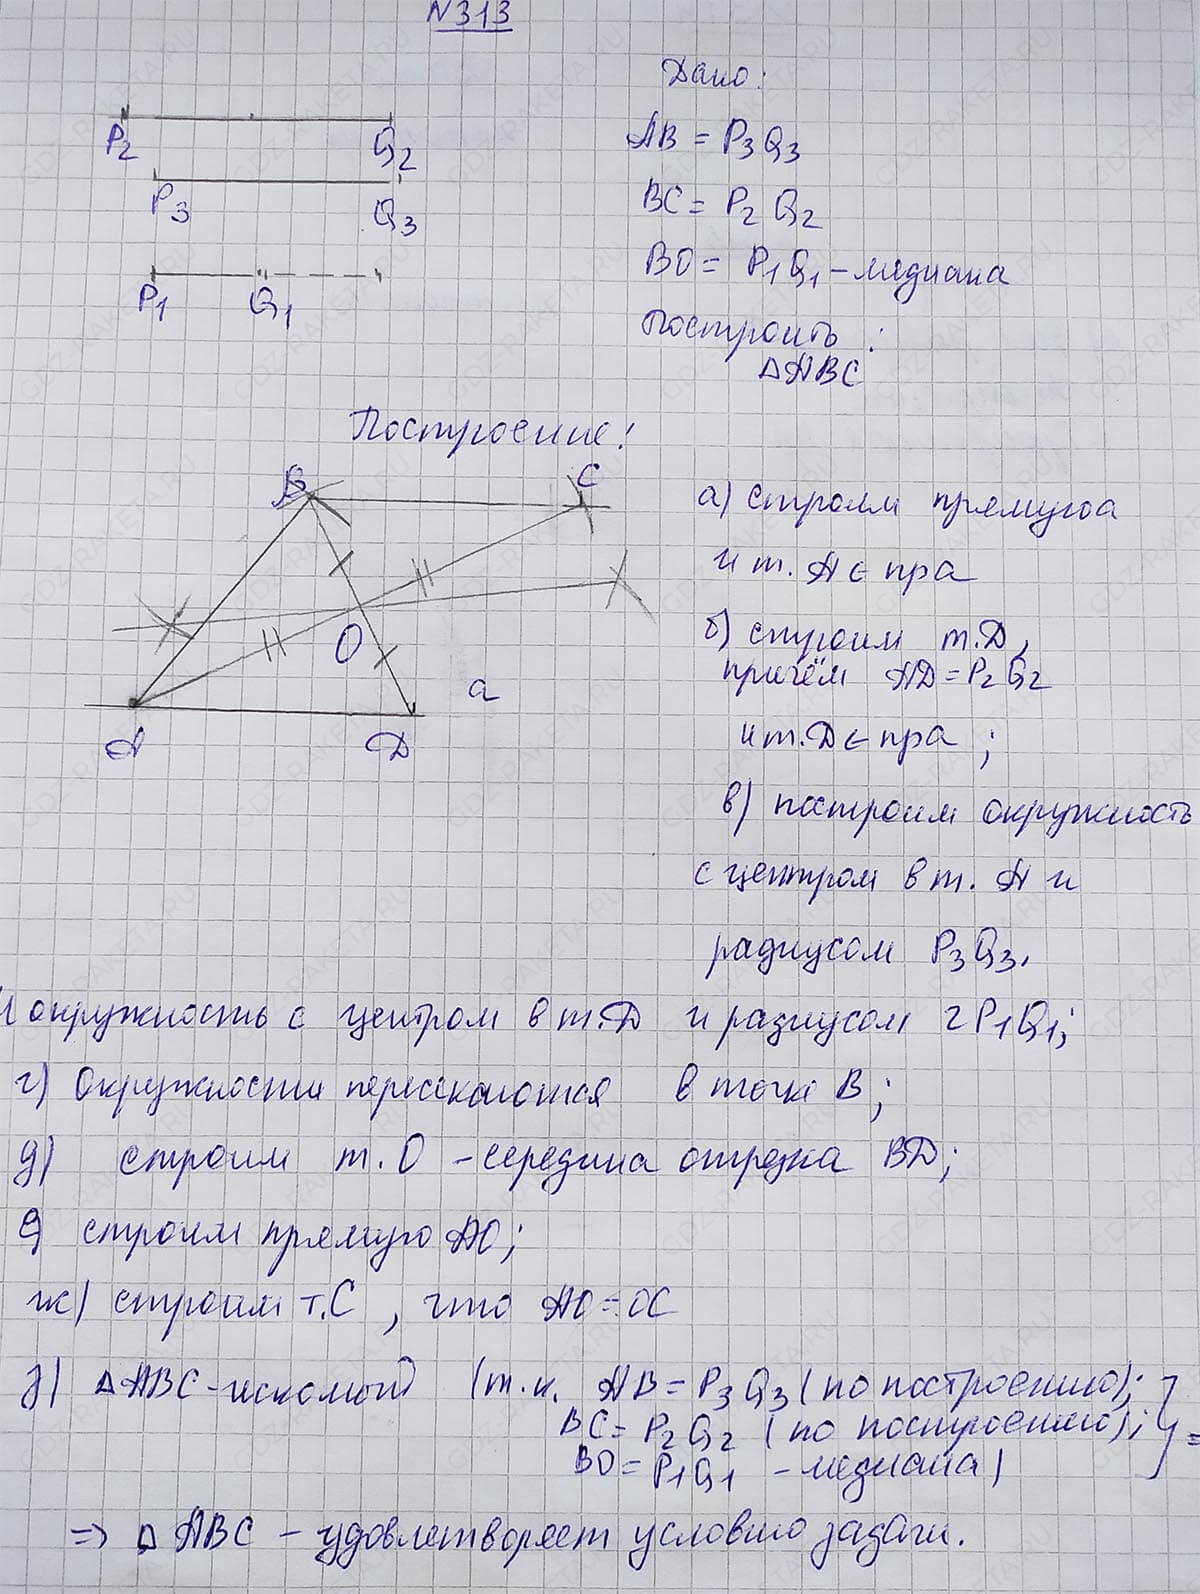 N313
Дано:
P2 Q2
AB = P3Q3
P3 Q3
BC = P2Q2
BO = P1Q1 - медиана
P1 Q1
Построить :
△ABC
Построение!
B C
а) строим прямую а
и т. A ∈ пр а
O
б) строим т. D,
причём AD = P2Q2
a
A D
и т. D ∈ пр а ;
в) построим окружность
с центром в т. A и
радиусом P3Q3.
И окружность с центром в т. D и радиусом 2P1Q1;
г) Окружности пересекаются в точке B;
д) строим т. O - середина отрезка BD;
е) строим прямую AO;
ж) строим т. C , что AO = OC
з) △ABC - искомый (т.к. AB = P3Q3 (по построению);
BC = P2Q2 (по построению); } =
BO = P1Q1 - медиана)
=> △ABC - удовлетворяет условию задачи.